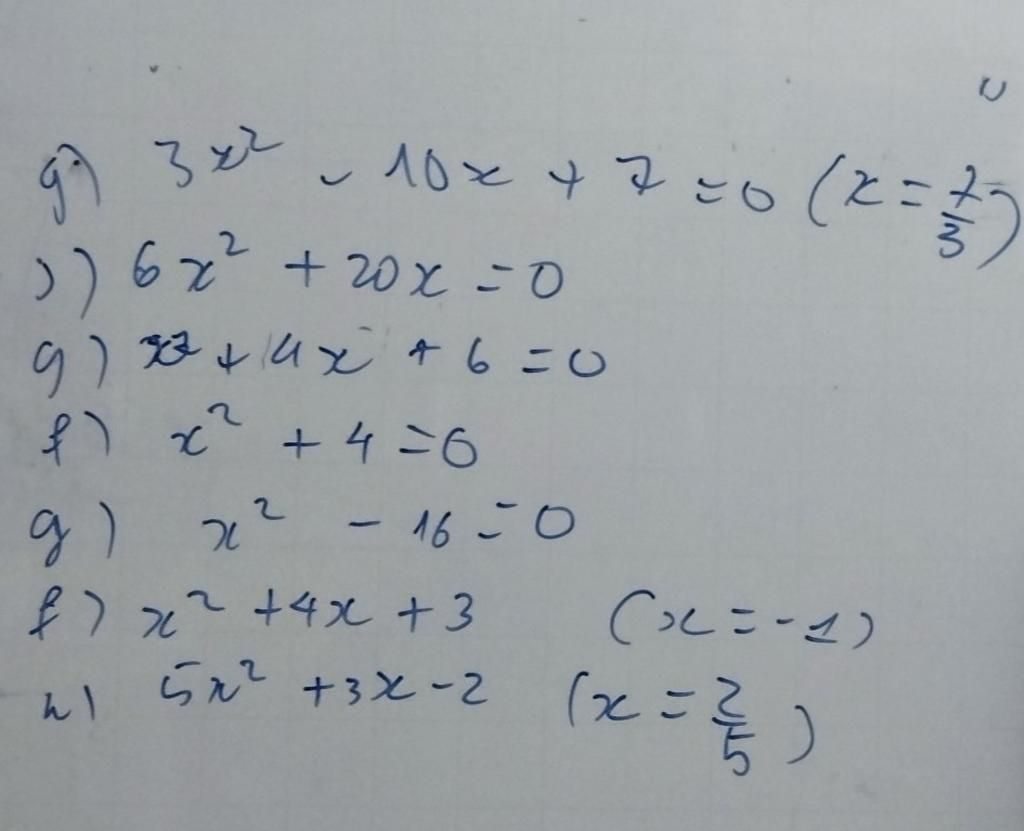 g) 3x² - 10x + 7 = 0 (x = 7/3)
) 6x² + 20x = 0
g) x² + 4x + 6 = 0
f) x² + 4 = 0
g) x² - 16 = 0
f) x² + 4x + 3 (x = -1)
h) 5x² + 3x - 2 (x = 2/5)